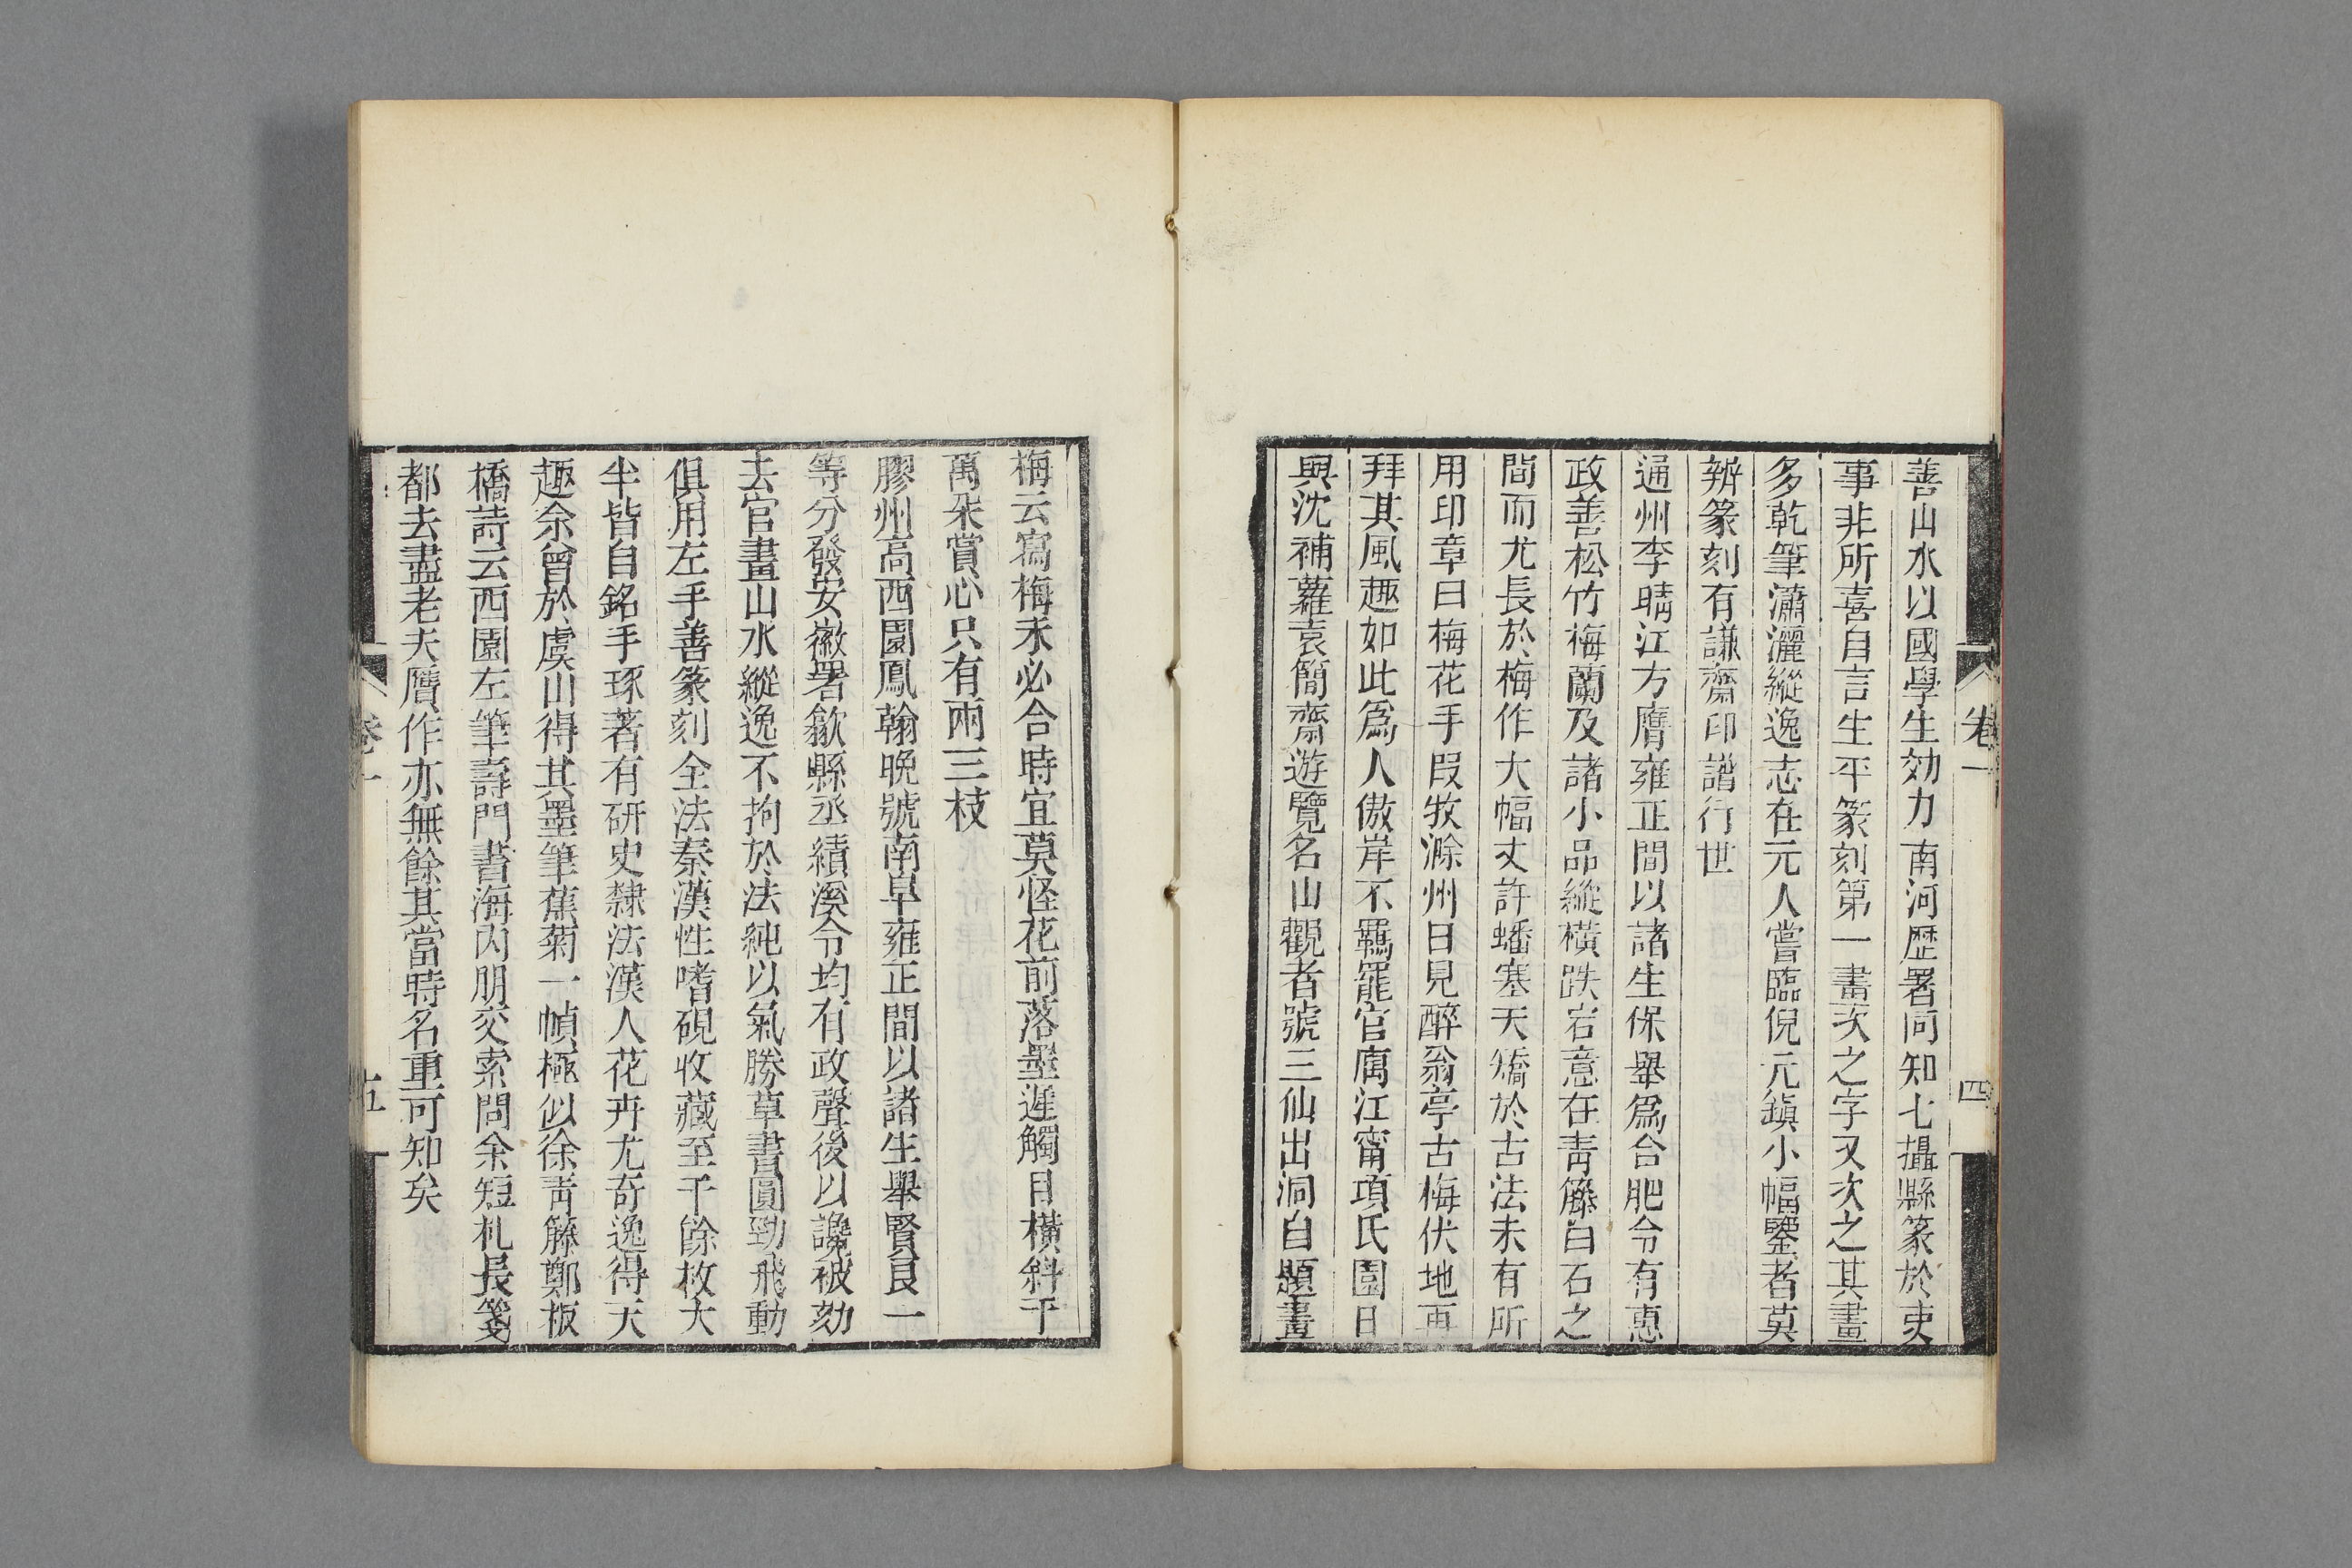 卷一
四
善山水以國學生効力南河歷署同知七攝縣篆於吏
事非所喜自言生平篆刻第一畫次之字又次之其畫
多乾筆瀟灑縱逸志在元人嘗臨倪元鎮小幅鑒者莫
辨篆刻有謙齋印譜行世
通州李晴江方膺雍正間以諸生保舉爲合肥令有惠
政善松竹梅蘭及諸小品縱橫跌宕意在青籐白石之
間而尤長於梅作大幅丈許蟠塞夭矯於古法未有所
用印章曰梅花手段牧滁州日見醉翁亭古梅伏地再
拜其風趣如此爲人傲岸不羈罷官寓江甯項氏園日
與沈補蘿袁簡齋遊覽名山觀者號三仙出洞自題畫
梅云寫梅未必合時宜莫怪花前落墨遲觸目橫斜千
萬朵賞心只有兩三枝
膠州高西園鳳翰晚號南阜雍正間以諸生舉賢良一
等分發安徽署歙縣丞績溪令均有政聲後以讒被劾
去官畫山水縱逸不拘於法純以氣勝草書圓勁飛動
俱用左手善篆刻全法秦漢性嗜硯收藏至千餘枚大
半皆自銘手琢著有研史隸法漢人花卉尤奇逸得天
趣余曾於虞山得其墨筆蕉菊一幀極似徐青籐鄭板
橋詩云西園左筆壽門書海內朋交索問余短札長箋
都去盡老夫贋作亦無餘其當時名重可知矣
卷一
五